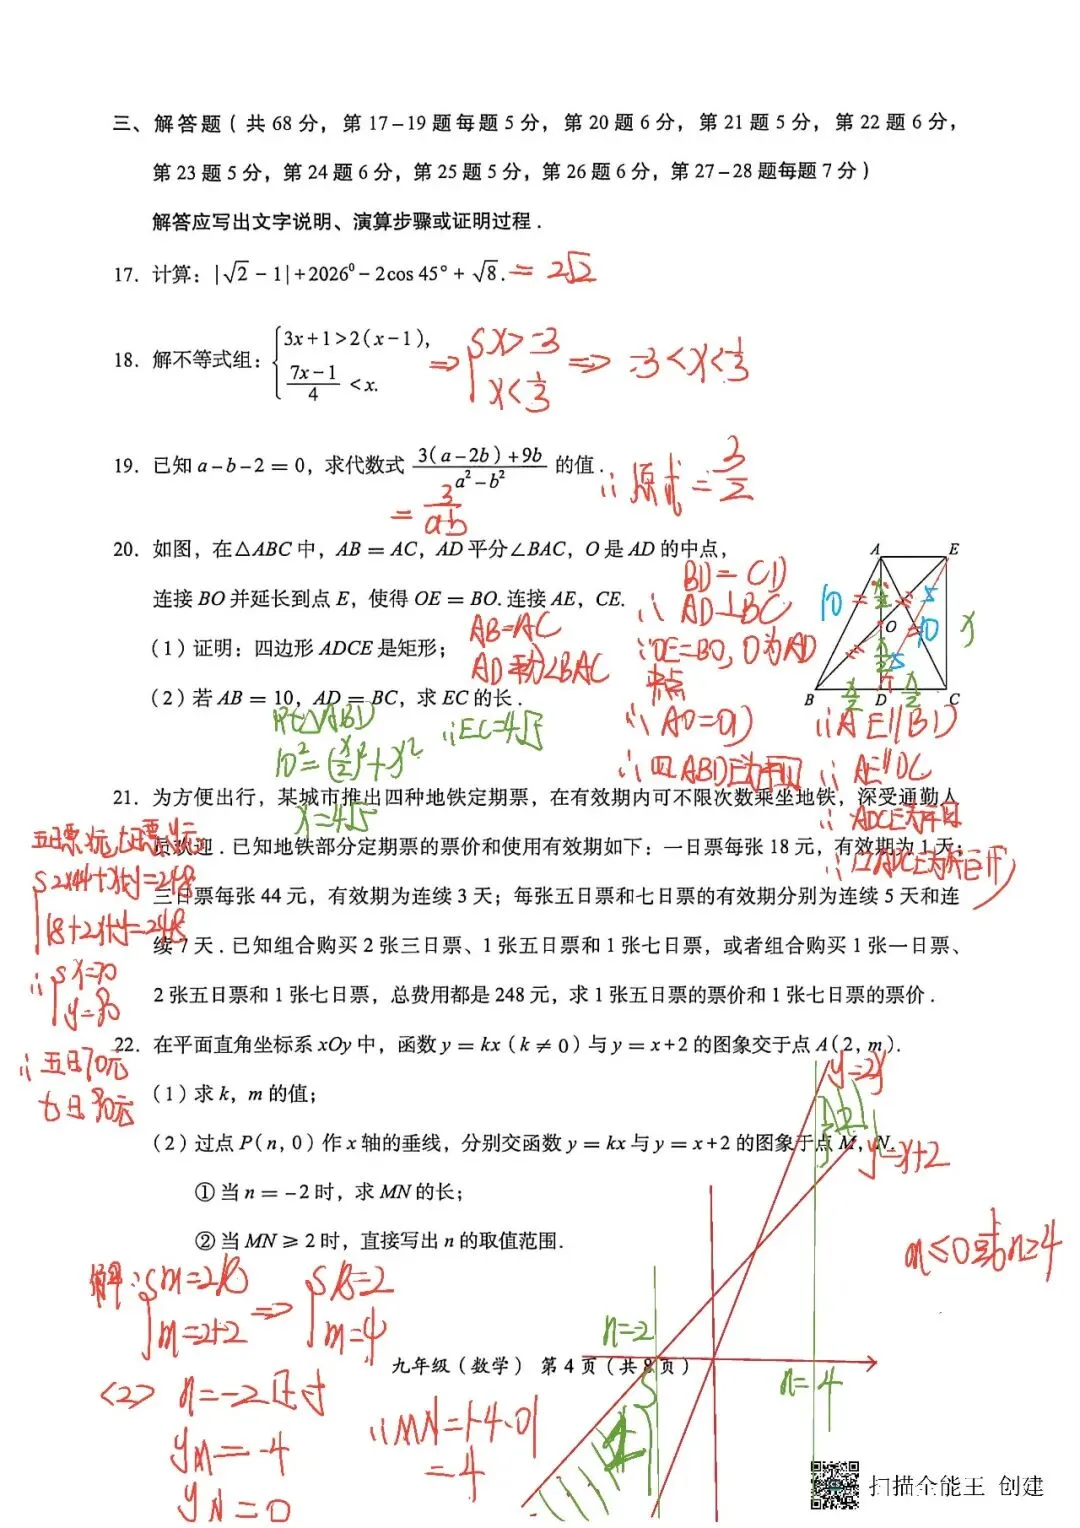 三、解答题（共68分，第17-19题每题5分，第20题6分，第21题5分，第22题6分，
第23题5分，第24题6分，第25题5分，第26题6分，第27-28题每题7分）
解答应写出文字说明、演算步骤或证明过程.
17. 计算：|√2-1|+2026⁰-2cos 45°+√8. = 2√2
18. 解不等式组：{3x+1>2(x-1), (7x-1)/4 <x. ⇒ {x>-3 x<1/3 ⇒ -3<x<1/3
19. 已知a-b-2=0，求代数式 (3(a-2b)+9b)/(a²-b²) 的值. ∴原式=3/2
= 3/(a-b)
20. 如图，在△ABC中，AB=AC，AD平分∠BAC，O是AD的中点，
连接BO并延长到点E，使得OE=BO.连接AE，CE.
(1)证明：四边形ADCE是矩形；
(2)若AB=10，AD=BC，求EC的长.
AB=AC
AD平分∠BAC
BD=CD
∴ AD⊥BC
∵OE=BO，O为AD
中点
∴ AO=OD
∴四ABDE为平四
∴AE∥BD
∴ AE∥DC
∴ ADCE为平四
∴▱ADCE为矩形
Rt△ABD
10²=(x/2)²+x²
x=4√5
∴EC=4√5
A E
10 5
O 10 x
5
B D C
x/2 x/2
21. 为方便出行，某城市推出四种地铁定期票，在有效期内可不限次数乘坐地铁，深受通勤人
员欢迎.已知地铁部分定期票的票价和使用有效期如下：一日票每张18元，有效期为1天；
三日票每张44元，有效期为连续3天；每张五日票和七日票的有效期分别为连续5天和连
续7天.已知组合购买2张三日票、1张五日票和1张七日票，或者组合购买1张一日票、
2张五日票和1张七日票，总费用都是248元，求1张五日票的票价和1张七日票的票价.
五日票x元，七日票y元
{2×44+x+y=248
18+2x+y=248
∴{x=70
y=90
∴五日70元
七日90元
22. 在平面直角坐标系xOy中，函数y=kx(k≠0)与y=x+2的图象交于点A(2, m).
(1)求k，m的值；
(2)过点P(n, 0)作x轴的垂线，分别交函数y=kx与y=x+2的图象于点M，N.
①当n=-2时，求MN的长；
②当MN≥2时，直接写出n的取值范围.
y=2x
y=x+2
n≤0或n≥4
解：{m=2k
m=2+2
⇒ {k=2
m=4
n=-2
n=4
<2> n=-2时
yM=-4
yN=0
∴MN=|-4-0|
=4
九年级（数学） 第4页（共8页）
扫描全能王 创建